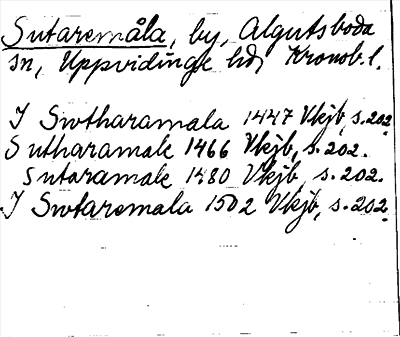 Sutaremåla, by, Algutsboda
sn, Uppvidinge hd, Kronob. l.
I Swtharamala 1447 Vkjb, s. 202
Sutharamale 1466 Vkjb, s. 202.
Sutaramale 1480 Vkjb, s. 202.
I Swtaremala 1502 Vkjb, s. 202